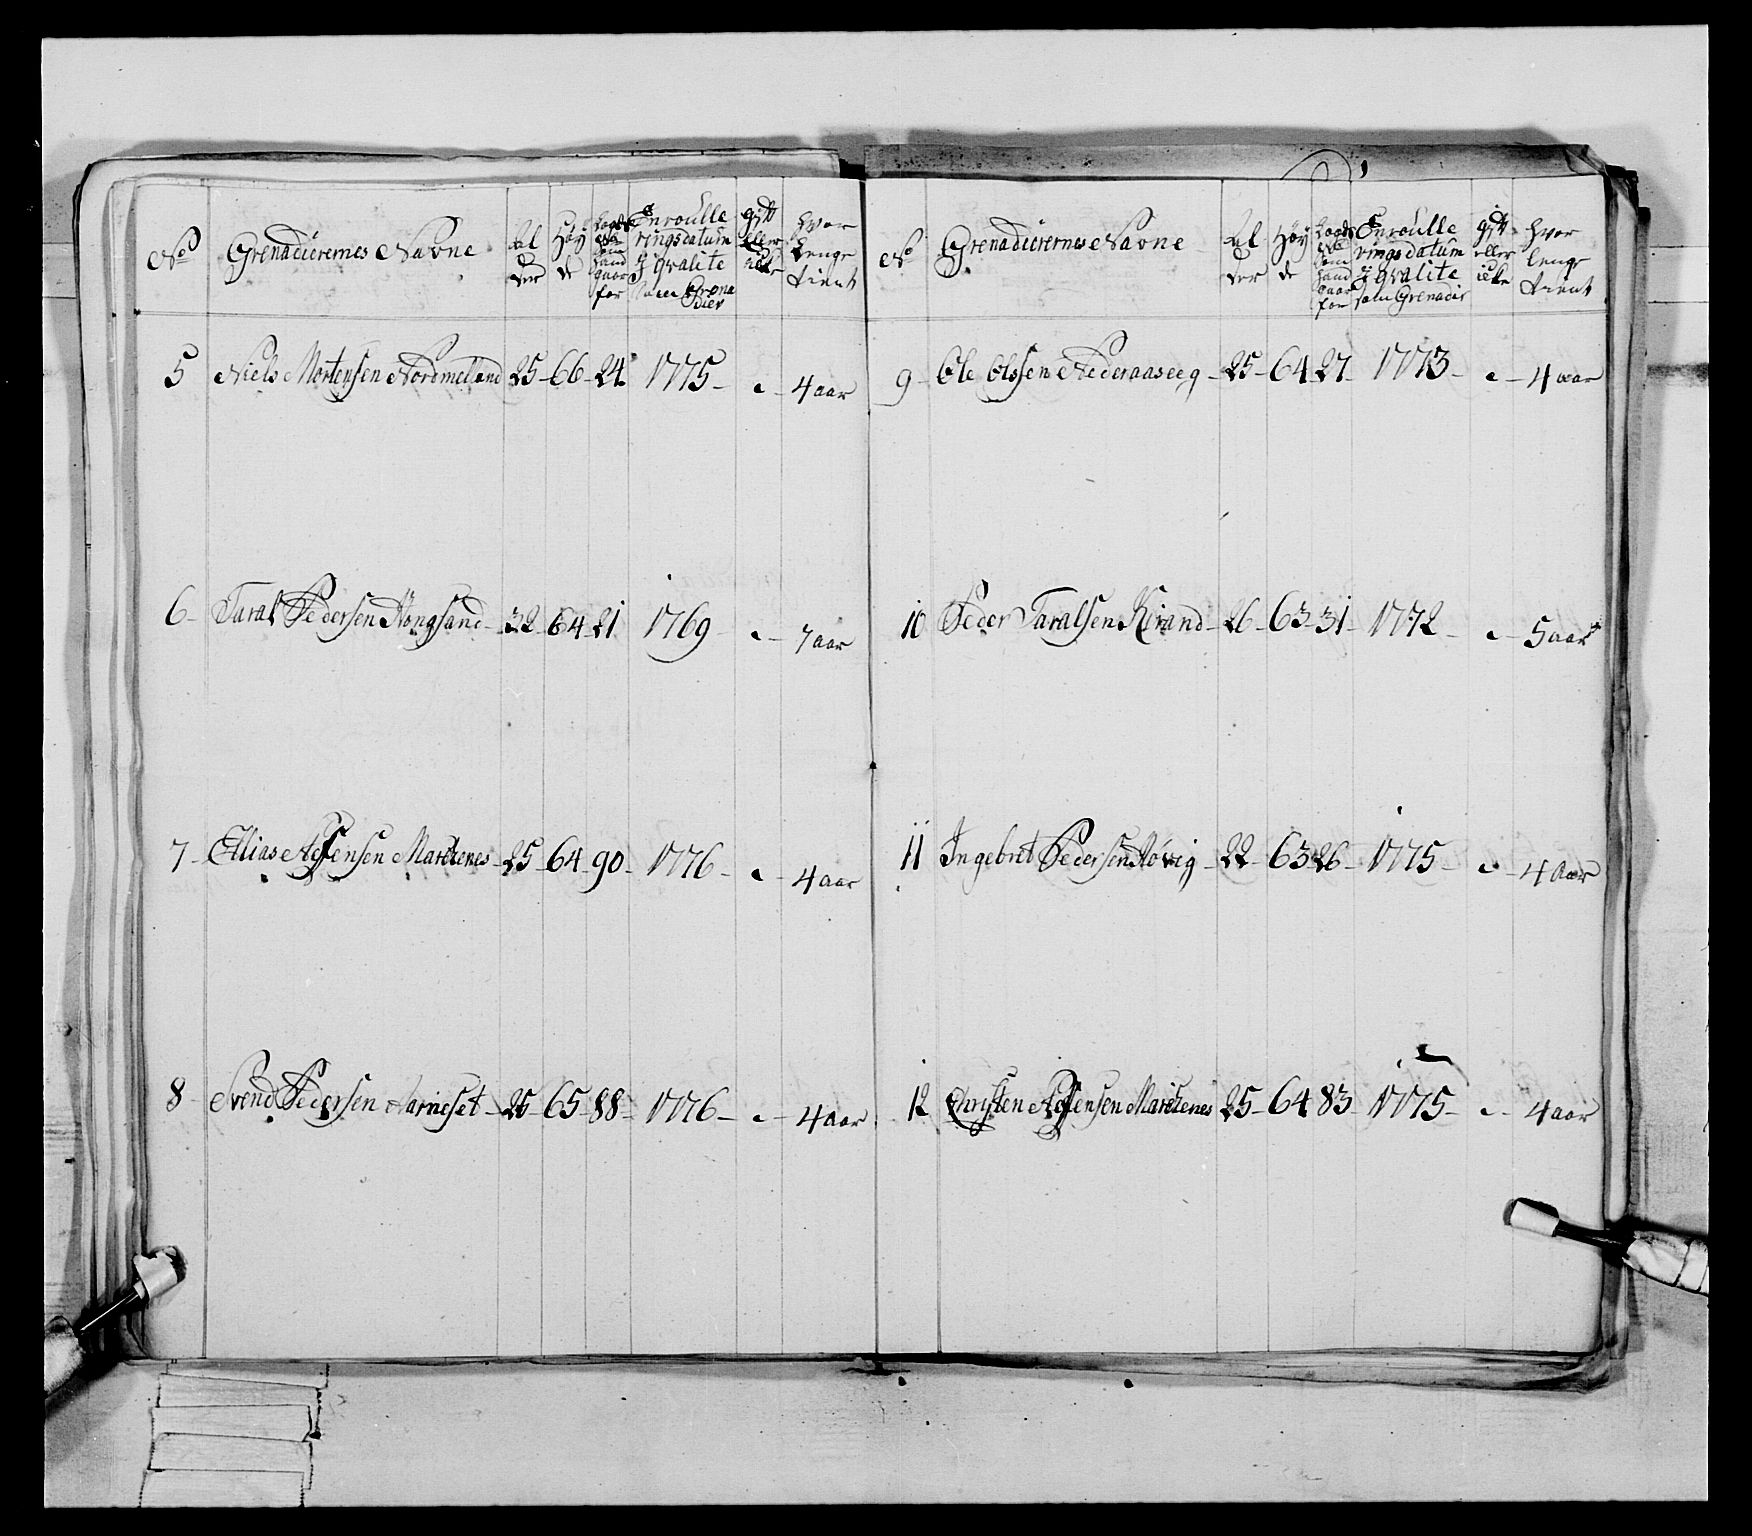 No Grenadierernes Navne Al der Høy de Laagds No som hand gaar for Enroullerings datum I qvalite som Grenadier gift eller icke hvor lenge tient
5 Niels Mortensen Nordmeland 25 66 24 1775 4 aar
6 Taral Pedersen Kongsand 32 64 21 1769 7 aar
7 Ellias Marchenes 25 64 90 1776 4 aar
8 Svend Pedersen 25 65 88 1776 4 aar
No Grenadierernes Navne Al der Høy de Laagds No som hand gaar for Enroullerings datum I qvalite som Grenadir gift eller icke hvor lenge tient
9 Ole Olssen Nederaaseeg 25 64 27 1773 4 aar
10 Peder Taralsen 26 63 31 1772 5 aar
11 Ingebret Pedersen 22 63 26 1775 4 aar
12 Christen Marchenes 25 64 83 1775 4 aar